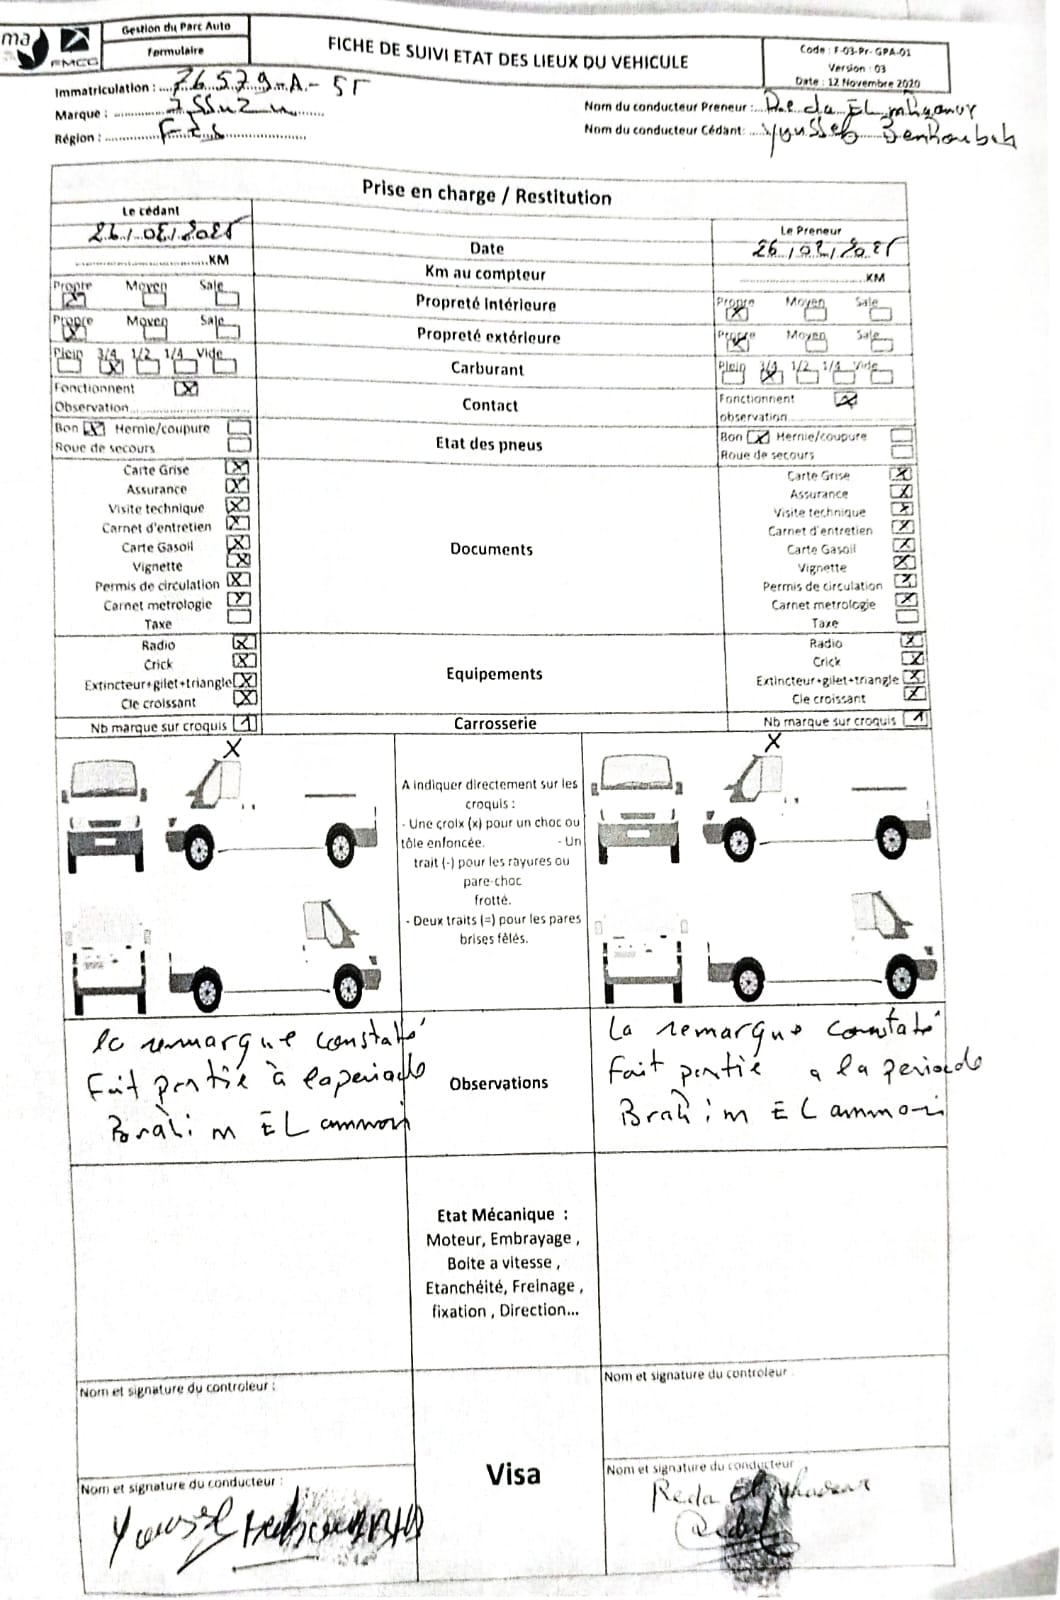 ma
FMCG
Gestion du Parc Auto
Formulaire
FICHE DE SUIVI ETAT DES LIEUX DU VEHICULE
Code : F-03-Pr-GPA-01
Version : 03
Date : 12 Novembre 2020
Immatriculation : 76579-A-
Marque :
Région : Fes
Nom du conducteur Preneur : Reda
Nom du conducteur Cédant:
Prise en charge / Restitution
Le cédant
Le Preneur
Date
KM
Km au compteur
KM
Propre Moyen Sale
Propreté Intérieure
Propre Moyen Sale
Propre Moyen Sale
Propreté extérieure
Propre Moyen Sale
Plein 3/4 1/2 1/4 Vide
Carburant
Plein 3/4 1/2 1/4 Vide
Fonctionnent X
Observation
Contact
Fonctionnent X
observation
Bon X Hernie/coupure
Roue de secours
Etat des pneus
Bon X Hernie/coupure
Roue de secours
Carte Grise X
Assurance X
Visite technique X
Carnet d'entretien X
Carte Gasoil X
Vignette X
Permis de circulation X
Carnet metrologie X
Taxe
Documents
Carte Grise X
Assurance X
Visite technique X
Carnet d'entretien X
Carte Gasoil X
Vignette X
Permis de circulation X
Carnet metrologie X
Taxe
Radio X
Crick X
Extincteur+gilet+triangle X
Cle croissant X
Equipements
Radio X
Crick X
Extincteur+gilet+triangle X
Cle croissant X
Nb marque sur croquis 1
Carrosserie
Nb marque sur croquis 1
X
X
A indiquer directement sur les
croquis :
- Une croix (x) pour un choc ou
tôle enfoncée. - Un
trait (-) pour les rayures ou
pare-choc
frotté.
- Deux traits (=) pour les pares
brises fêlés.
la remarque constaté
Fait partie à la periode
Brahim EL ammari
Observations
La remarque constaté
Fait partie a la periode
Brahim EL ammari
Etat Mécanique :
Moteur, Embrayage ,
Boite a vitesse ,
Etanchéité, Freinage ,
fixation , Direction...
Nom et signature du controleur :
Nom et signature du controleur
Visa
Nom et signature du conducteur :
Nom et signature du conducteur
Reda